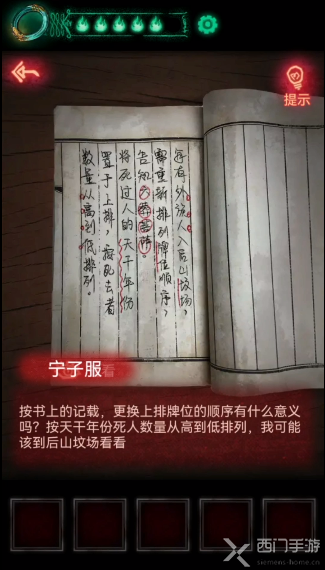 提示
每有外族人入后山坟场，
需重新排列牌位顺序，
告知
将死过人的天干年份
置于上排，按死去者
数量从高到低排列。
宁子服
按书上的记载，更换上排牌位的顺序有什么意义
吗？按天干年份死人数量从高到低排列，我可能
该到后山坟场看看
西门手游
siemens-home.com